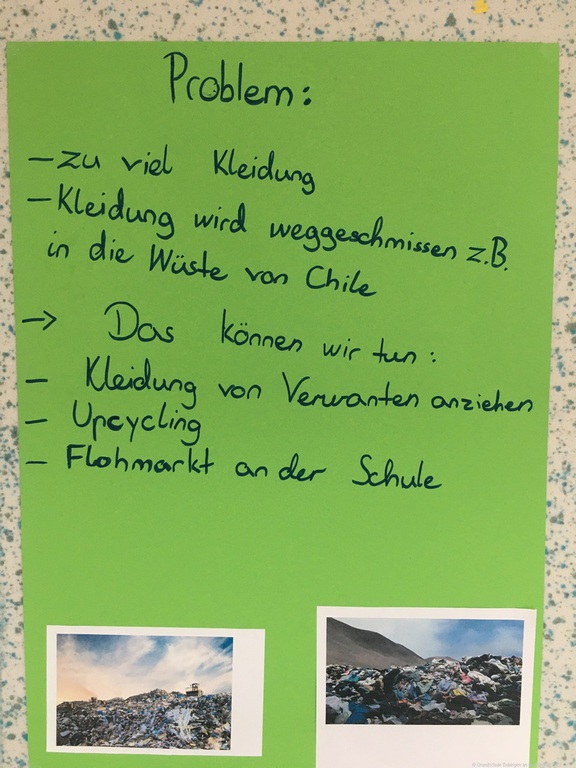 Problem:
- zu viel Kleidung
- Kleidung wird weggeschmissen z.B.
in die Wüste von Chile
→ Das können wir tun:
- Kleidung von Verwanten anziehen
- Upcycling
- Flohmarkt an der Schule